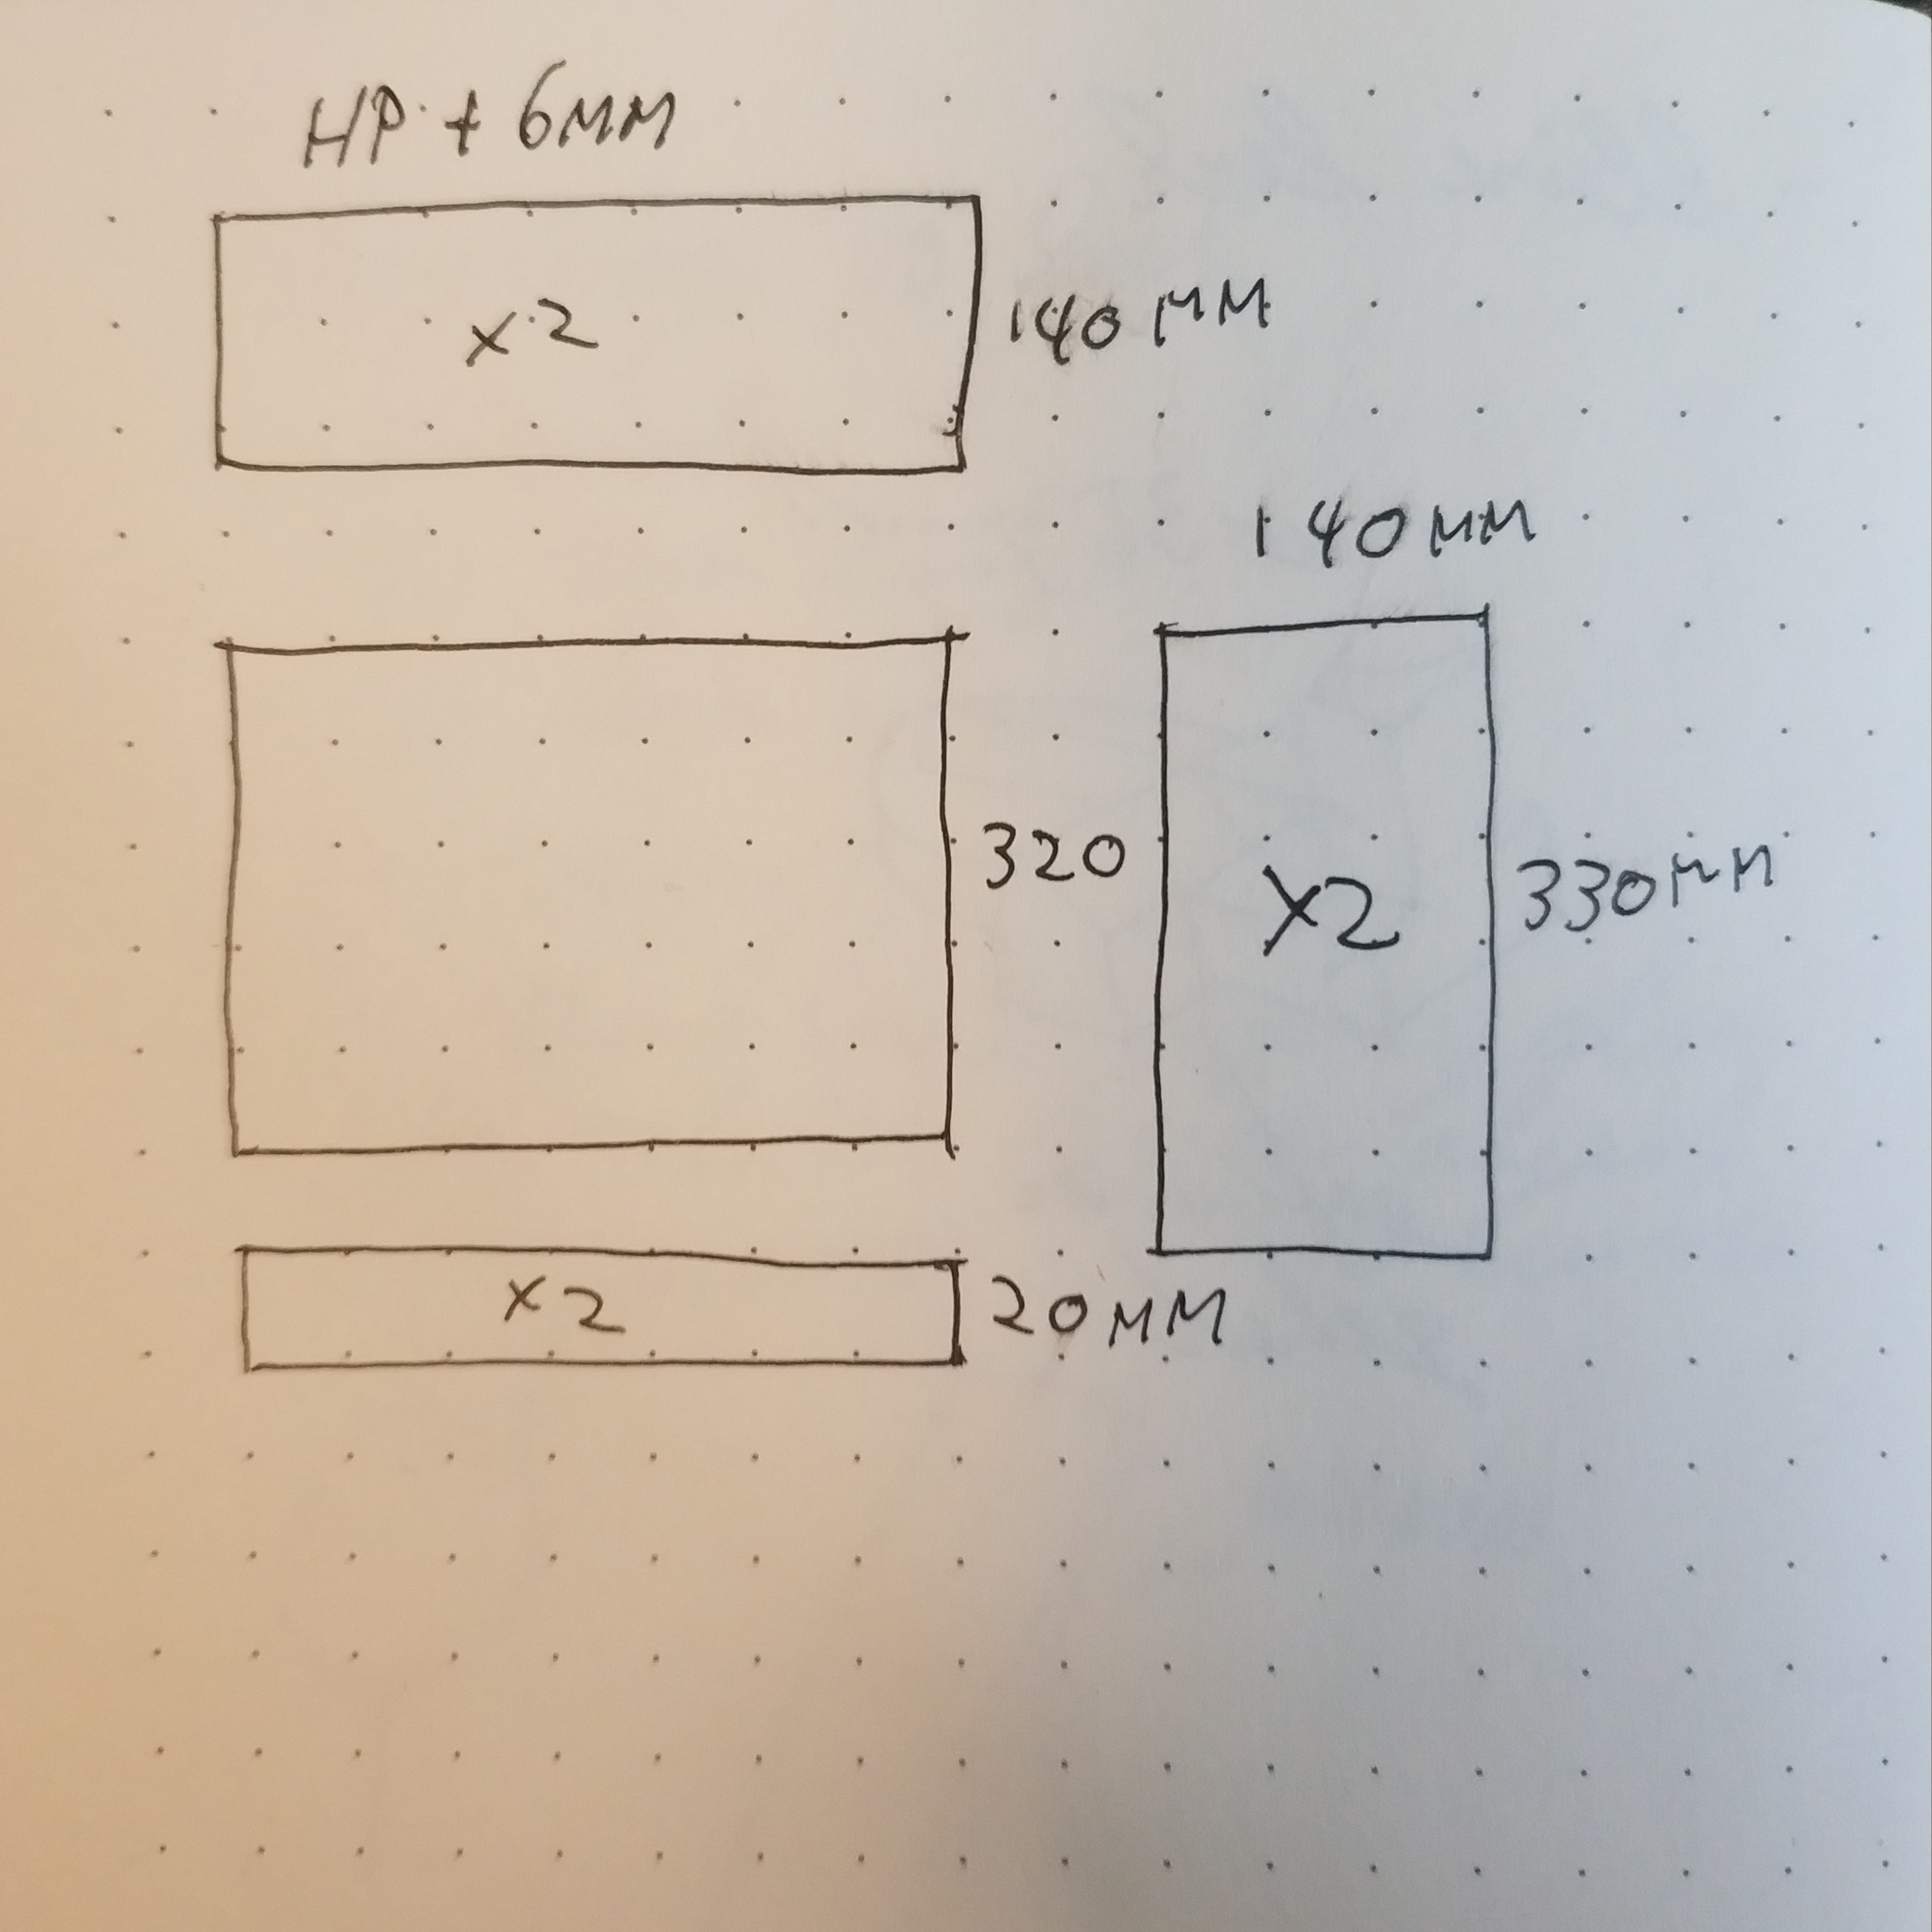 HP + 6MM
x2
140 MM
140MM
320
x2
330MM
x2
20MM